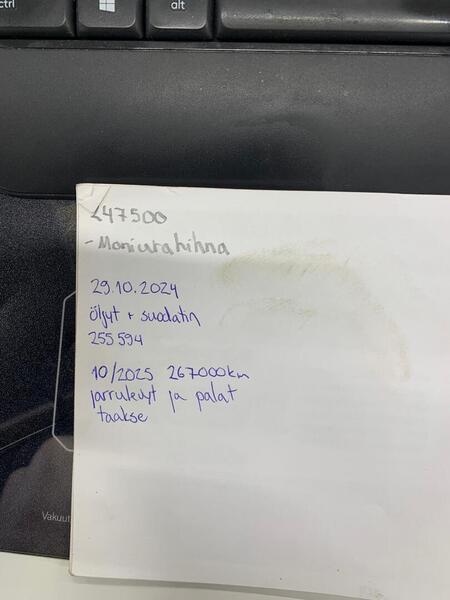 ctrl
alt
247500
- Moniurahihna
29.10.2024
Öljyt + suodatin
255594
10/2025 267000km
jarrulevyt ja palat
taakse
Vakuut